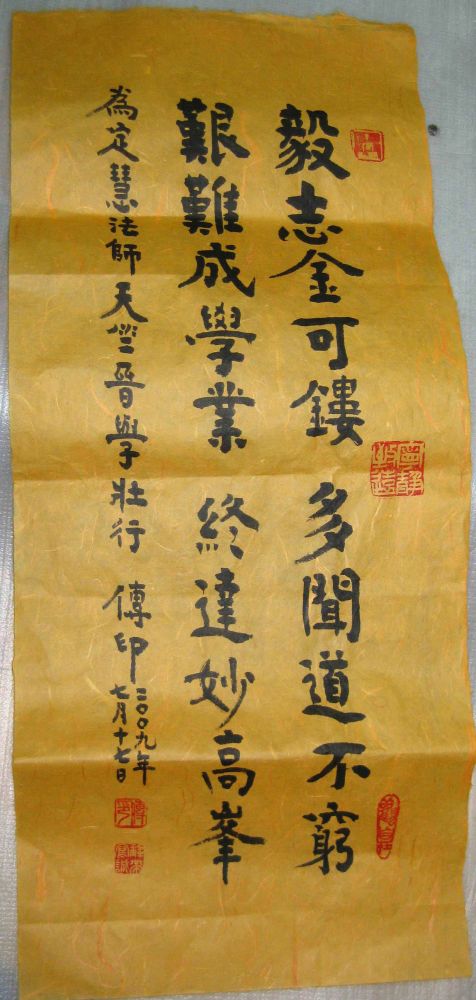 毅志金可鏤 多聞道不窮
艱難成學業 終達妙高峯
為定慧法師天竺晉學壯行 傳印
二〇〇九年
七月十七日
寧靜
致遠